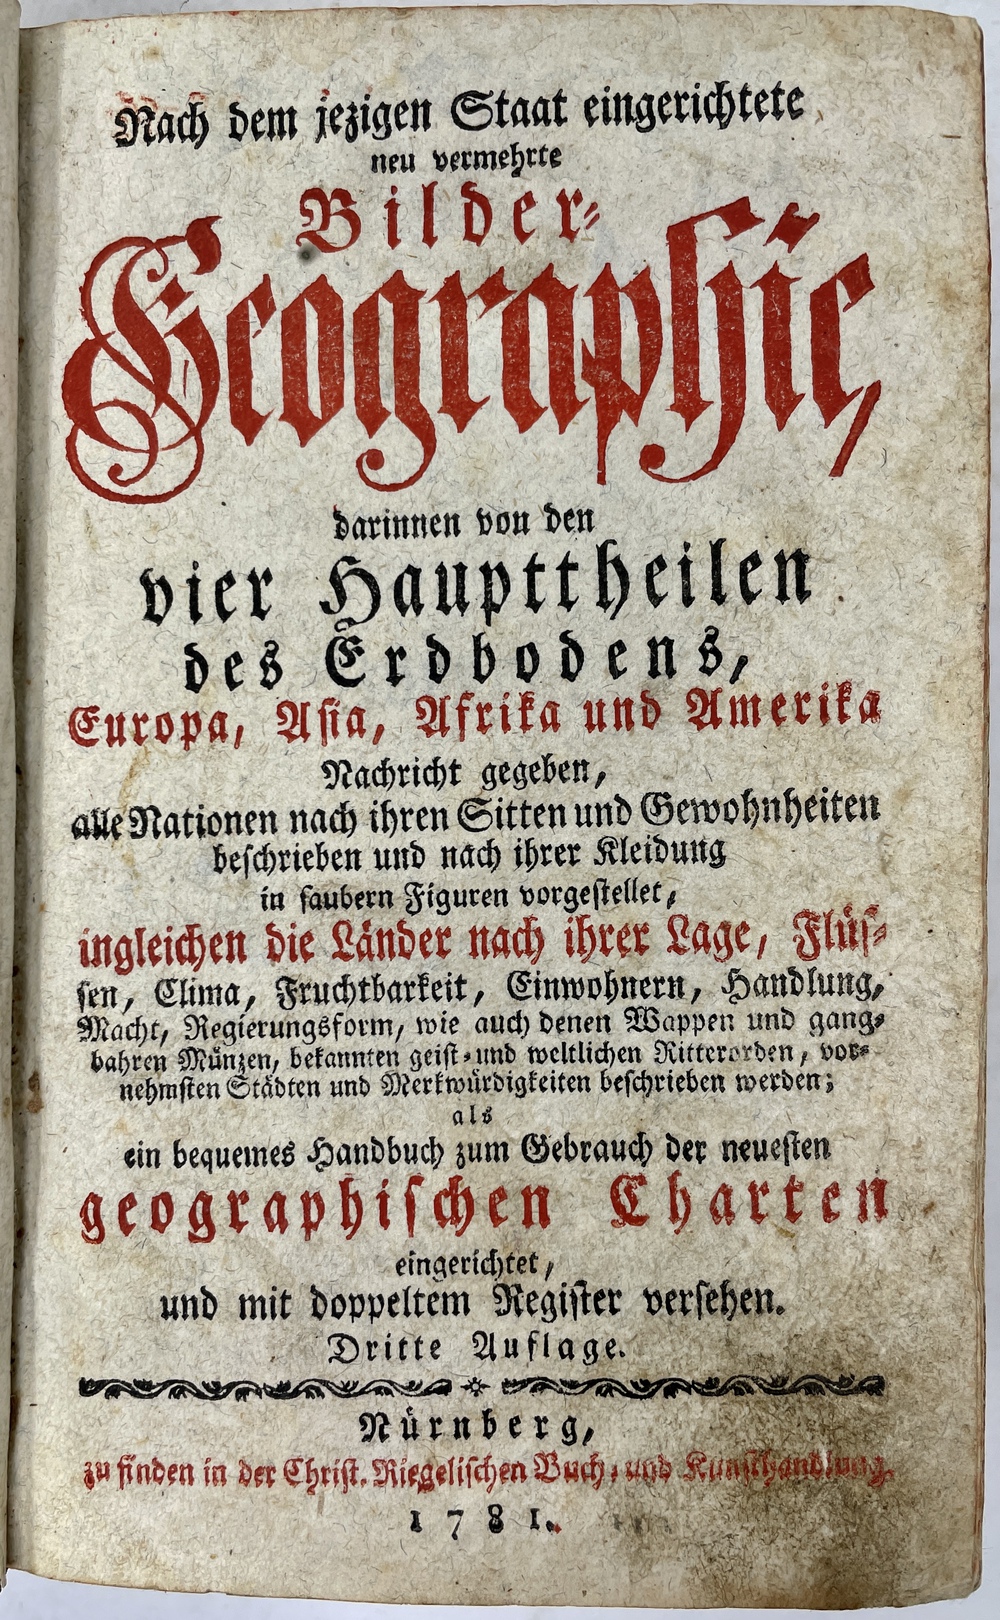 Nach dem jezigen Staat eingerichtete
neu vermehrte
Bilder-
Geographie,
darinnen von den
vier Haupttheilen
des Erdbodens,
Europa, Asia, Afrika und Amerika
Nachricht gegeben,
alle Nationen nach ihren Sitten und Gewohnheiten
beschrieben und nach ihrer Kleidung
in saubern Figuren vorgestellet,
ingleichen die Länder nach ihrer Lage, Flüs-
sen, Clima, Fruchtbarkeit, Einwohnern, Handlung,
Macht, Regierungsform, wie auch denen Wappen und gang-
bahren Münzen, bekannten geist- und weltlichen Ritterorden, vor-
nehmsten Städten und Merkwürdigkeiten beschrieben werden;
als
ein bequemes Handbuch zum Gebrauch der neuesten
geographischen Charten
eingerichtet,
und mit doppeltem Register versehen.
Dritte Auflage.
Nürnberg,
zu finden in der Christ. Riegelischen Buch- und Kunsthandlung.
1781.